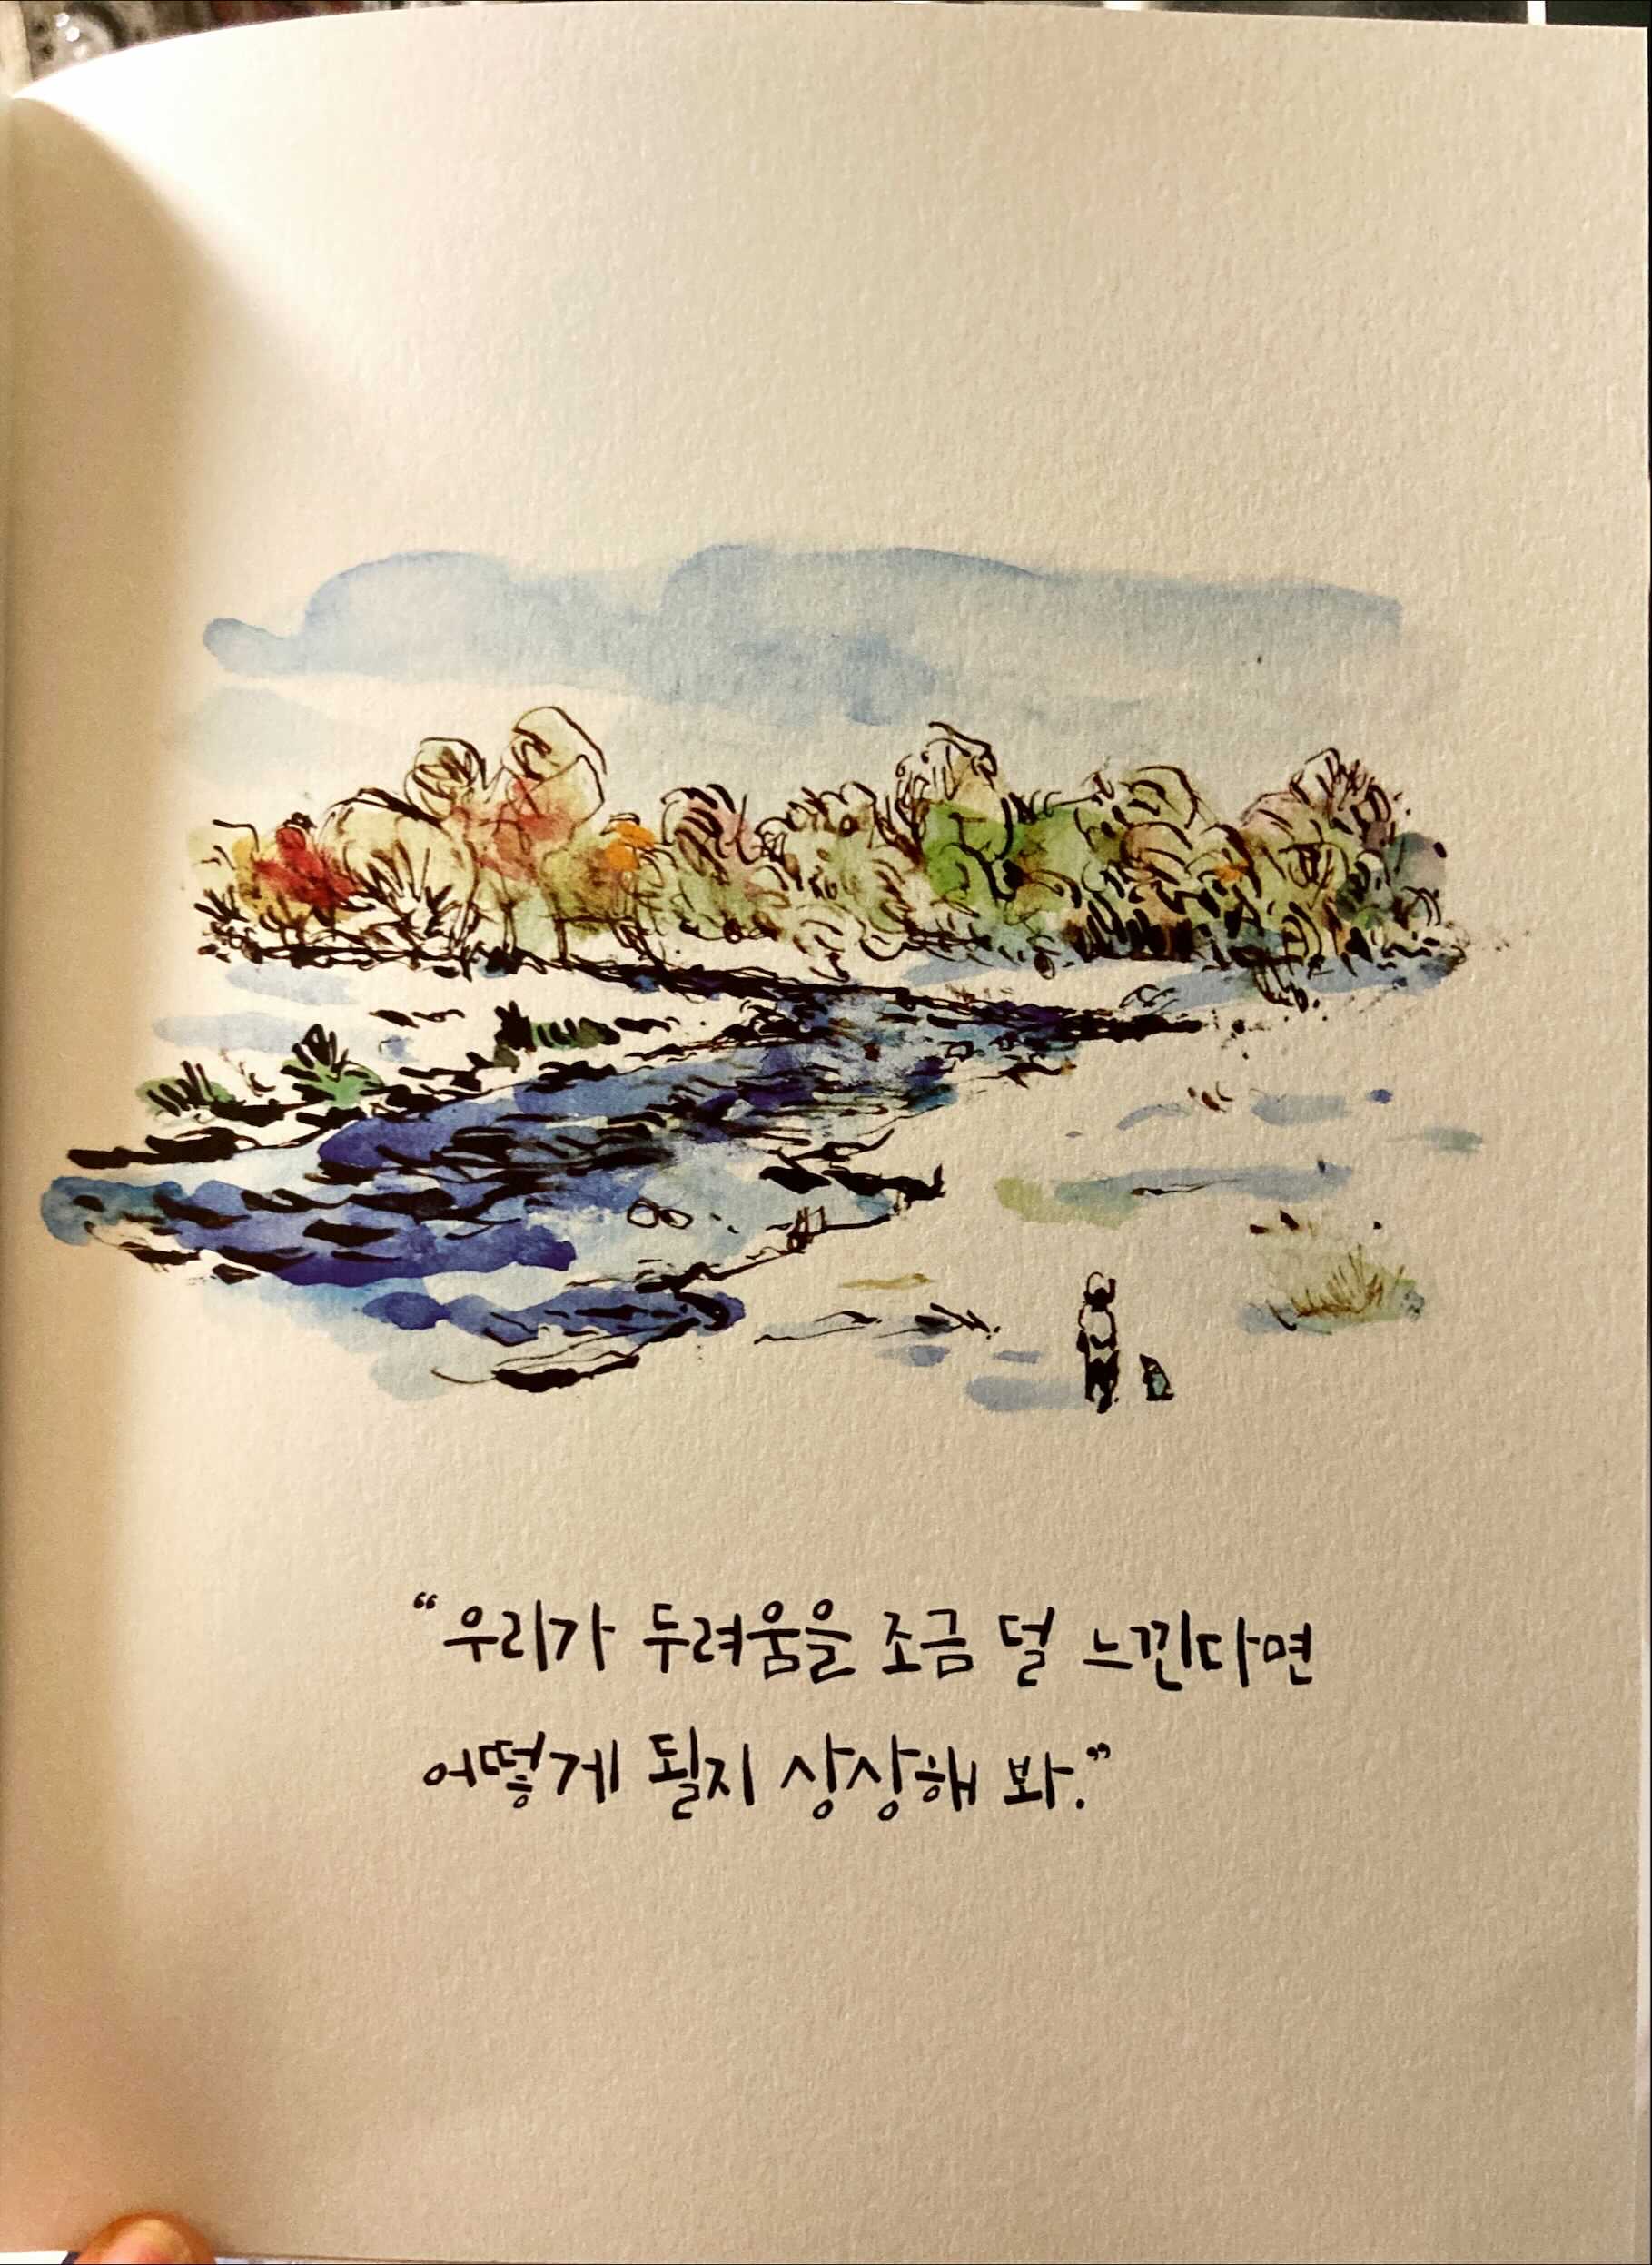 “우리가 두려움을 조금 덜 느낀다면
어떻게 될지 상상해 봐.”